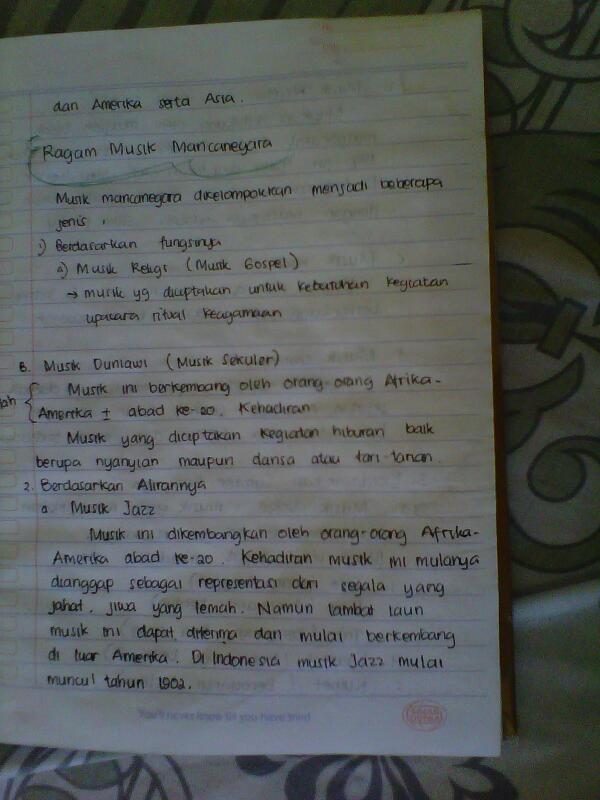 dan Amerika serta Asia.
Ragam Musik Mancanegara
Musik mancanegara dikelompokkan menjadi beberapa
jenis.
1) Berdasarkan fungsinya
a) Musik Religi (Musik Gospel)
→ musik yg diciptakan untuk kebutuhan kegiatan
upacara ritual keagamaan
B. Musik Duniawi (Musik Sekuler)
Musik ini berkembang oleh orang-orang Afrika-
Amerika ± abad ke-20. Kehadiran
Musik yang diciptakan kegiatan hiburan baik
berupa nyanyian maupun dansa atau tari-tarian.
2. Berdasarkan Alirannya
a. Musik Jazz
Musik ini dikembangkan oleh orang-orang Afrika-
Amerika abad ke-20. Kehadiran musik ini mulanya
dianggap sebagai representasi dari segala yang
jahat, jiwa yang lemah. Namun lambat laun
musik ini dapat diterima dan mulai berkembang
di luar Amerika. Di Indonesia musik Jazz mulai
muncul tahun 1902.
You'll never know till you have tried
SINAR DUNIA